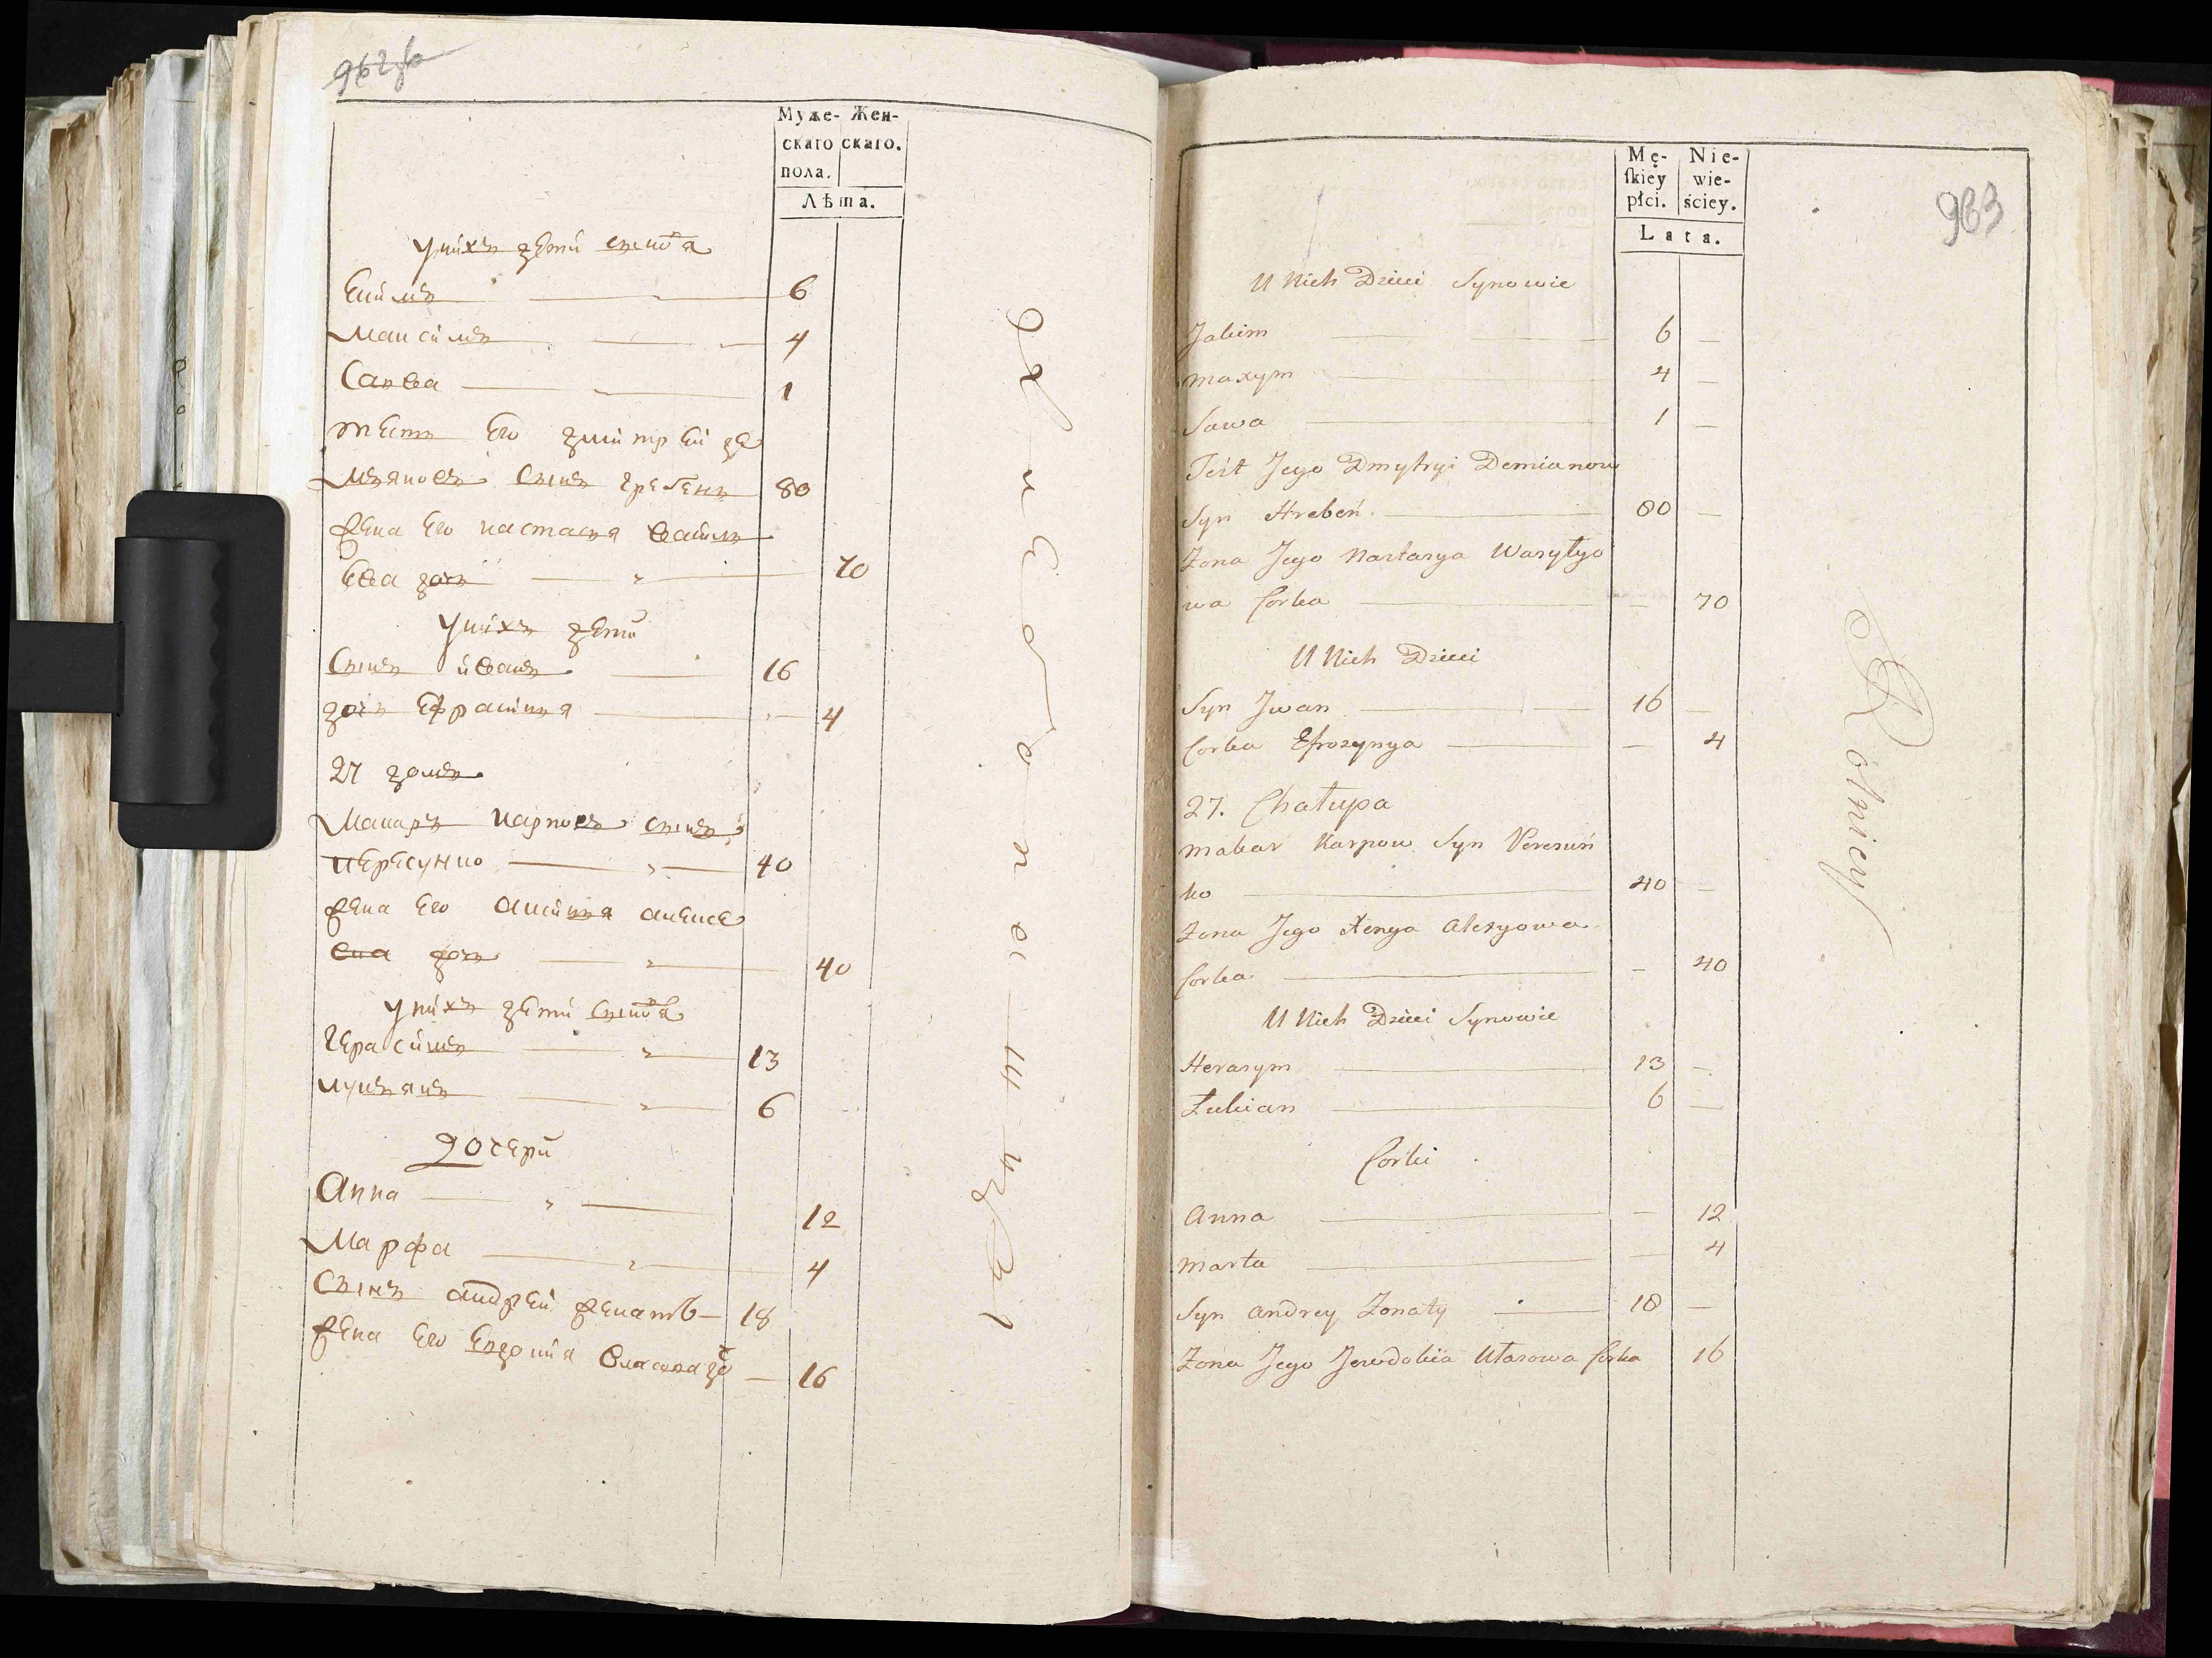 962об
Муже- Жен-
скаго скаго.
пола.
Лѣта.
у нихъ дети сыновя
Екимъ 6
Максимъ 4
Савва 1
тесть Его дмитрей де
мъяновъ сынъ гребень 80
жена Его настасья василь
Ева дочь 70
у нихъ дети
Сынъ иванъ 16
дочь Ефросинья 4
27 домъ
Макаръ карповъ сынъ
пересунко 40
жена Его аксинья алексе
Ева дочь 40
у нихъ дети сыновя
Герасимъ 13
лукъянъ 6
дочери
Анна 12
Марфа 4
Сынъ андрей женатъ 18
жена Его Евдокия Власова до 16
983
Mę- Nie-
skiey wie-
płci. ściey.
Lata.
U Nich Dzieci Synowie
Jakim 6 —
Maxym 4 —
Sawa 1 —
Teść Jego Dmytryi Demianow
Syn Hrebeń. 80 —
Zona Jego Nastasya Wasyłyo
wa Corka — 70
U Nich Dzieci
Syn Jwan 16 —
Corka Efrozynya — 4
27. Chałupa
Makar Karpow Syn Peresuń
ko 40 —
Zona Jego Xenya Alexyowa
Corka — 40
U Nich Dzieci Synowie
Herasym 13 —
Łukian 6 —
Corki
Anna — 12
Marta — 4
Syn Andrey Zonaty 18 —
Zona Jego Jewdokia Ułasowa Corka 16
Rolniczy